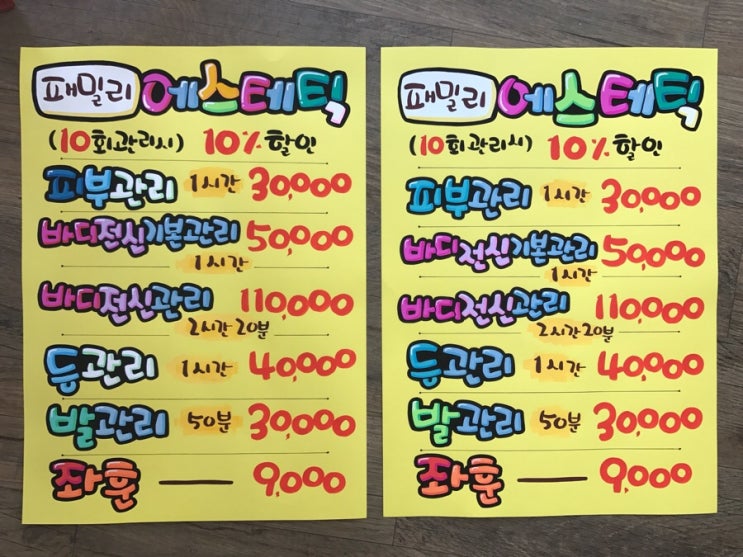 패밀리 에스테틱
(10회관리시) 10% 할인
피부관리 1시간 30,000
바디전신기본관리 50,000
1시간
바디전신관리 110,000
2시간 20분
등관리 1시간 40,000
발관리 50분 30,000
좌훈 — 9,000
패밀리 에스테틱
(10회관리시) 10% 할인
피부관리 1시간 30,000
바디전신기본관리 50,000
1시간
바디전신관리 110,000
2시간 20분
등관리 1시간 40,000
발관리 50분 30,000
좌훈 — 9,000